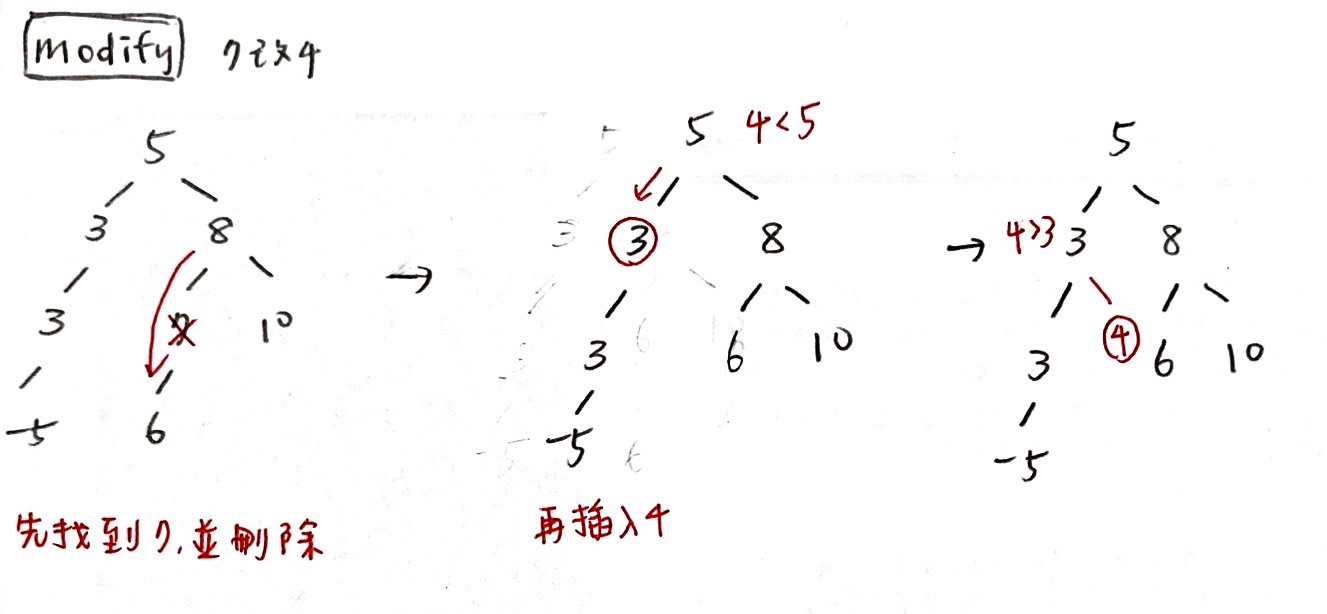 modify 7改4
5
3 8
3 7 10
-5 6
先找到7,並刪除
→
5 4<5
3 8
3 6 10
-5
再插入4
→
5
4>3 3 8
3 4 6 10
-5